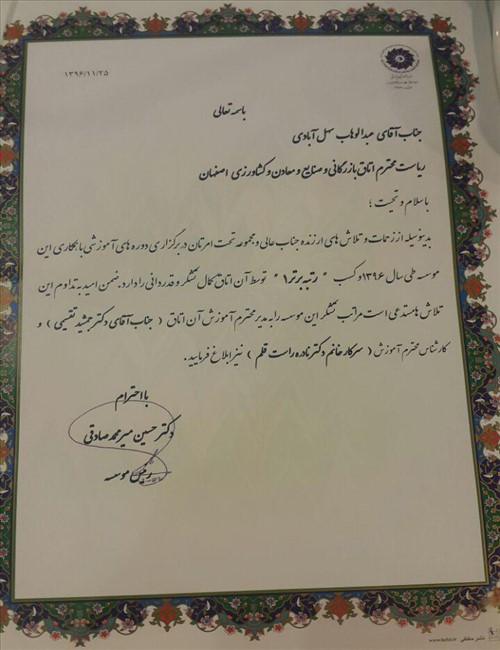 ۱۳۹۶/۱۱/۲۵
باسمه تعالی
جناب آقای عبدالوهاب سهل آبادی
ریاست محترم اتاق بازرگانی و صنایع و معادن و کشاورزی اصفهان
با سلام و تحیت ؛
بدینوسیله از زحمات و تلاش های ارزنده جناب عالی و مجموعه تحت امرتان در برگزاری دوره های آموزشی با همکاری این
موسسه طی سال ۱۳۹۶ و کسب " رتبه برتر ۱ " توسط آن اتاق کمال تشکر و قدردانی را دارد. ضمن امید به تداوم این
تلاش ها مستدعی است مراتب تشکر این موسسه را به مدیر محترم آموزش آن اتاق ( جناب آقای دکتر جمشید نفیسی ) و
کارشناس محترم آموزش ( سرکار خانم دکتر نادره راست قلم ) نیز ابلاغ فرمایید .
با احترام
دکتر حسین میرمحمد صادقی
رئیس موسسه